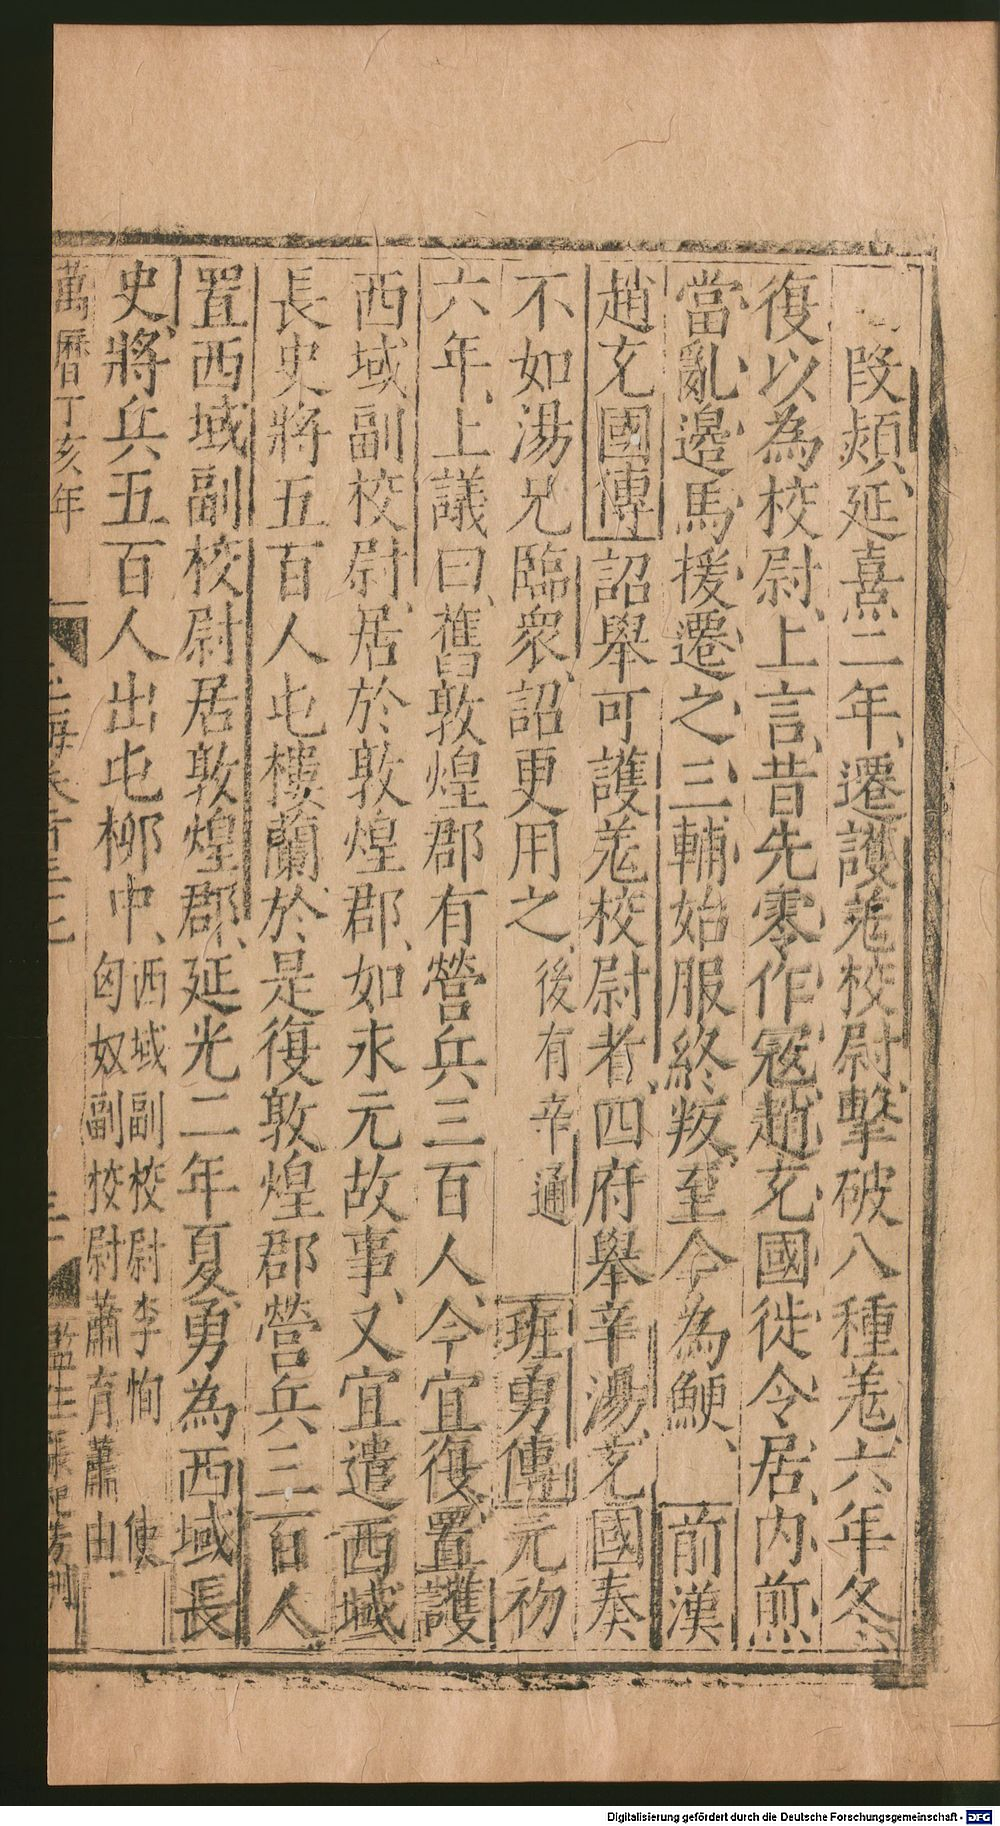 段熲延熹二年遷護羌校尉擊破八種羌六年冬
復以為校尉上言昔先零作寇趙充國徙令居内煎
當亂邊馬援遷之三輔始服終叛至今為鯁 前漢
趙充國傳詔舉可護羌校尉者四府舉辛湯充國奏
不如湯兄臨衆詔更用之後有辛通 班勇傳元初
六年上議曰舊敦煌郡有營兵三百人今宜復置護
西域副校尉居於敦煌郡如永元故事又宜遣西域
長史將五百人屯樓蘭於是復敦煌郡營兵三百人
置西域副校尉居敦煌郡延光二年夏勇為西域長
史將兵五百人出屯柳中
西域副校尉李恂 使
匈奴副校尉蕭育蕭由
萬曆丁亥年
監生
Digitalisierung gefördert durch die Deutsche Forschungsgemeinschaft - DFG